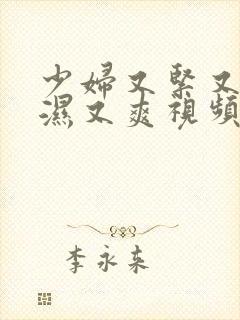 少婦又緊又
濕又爽視頻
李永来